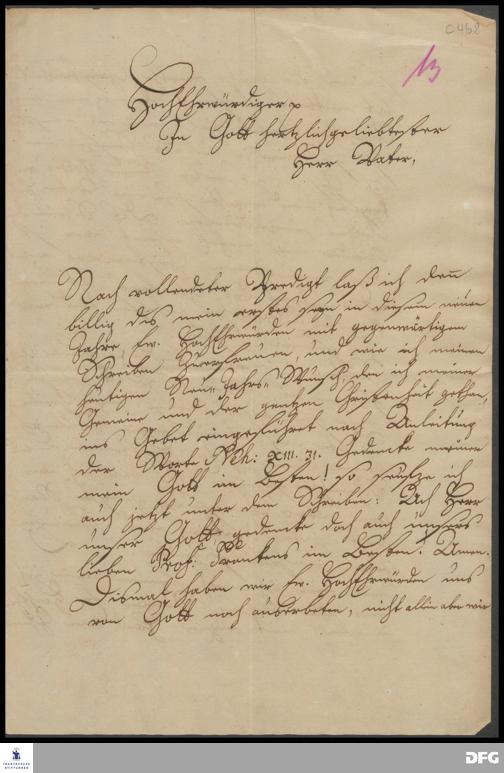 C 468
13
HochEhrwürdiger p
In Gott hertzlichgeliebtester
Herr Vater,
Nach vollendeter Predigt laß ich denn
billig das mein erstes seyn in diesem neuen
Jahre, Ew. HochEhrwürden mit gegenwärtigem
Schreiben zu erfreuen, und wie ich meinen
heutigen Neu-Jahrs-Wunsch, den ich meiner
Gemeine und der gantzen Christenheit gethan,
ins Gebet eingeführet nach Anleitung
der Worte Neh: XIII. 31. Gedencke meiner
mein Gott im Besten! so seufze ich
auch jetzt unter dem Schreiben: Ach Herr
unser Gott gedencke doch auch unsers
lieben Prof: Franckens im Besten. Amen.
Dismal haben wir Ew. HochEhrwürden uns
von Gott noch auserbeten, nicht allein aber wir
FRANCKESCHE
STIFTUNGEN
DFG